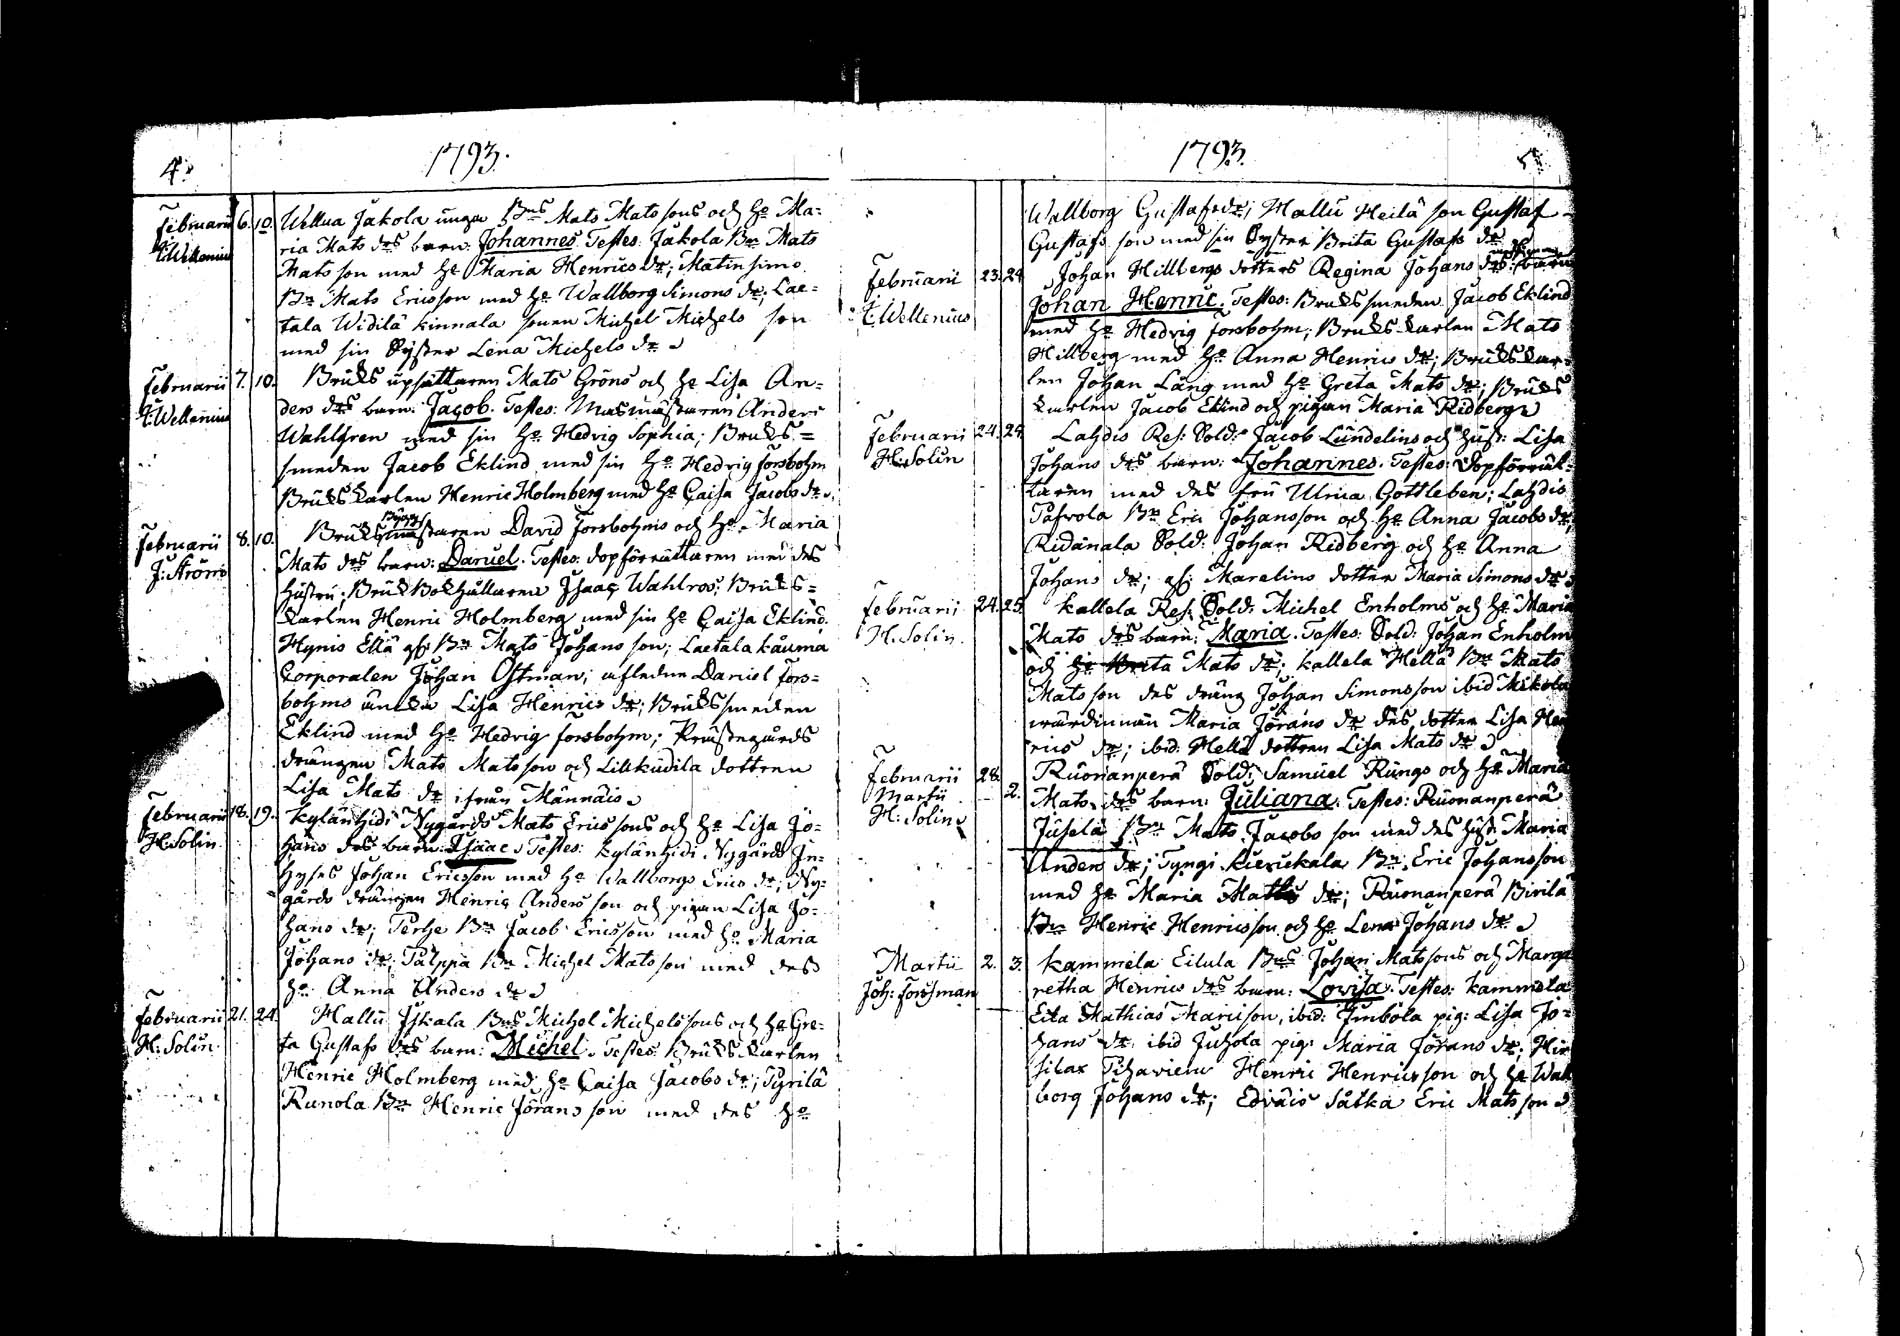 4.
1793.
Februarii 6. 10. Wellua Jakola unga Bns Mats Matssons och He Ma=
T. Wellenius ria Mats drs barn: Johannes. Testes: Jakola Bn Mats
Matsson med He Maria Henrics dr; Matinsimo
Bn Mats Ericsson med He Wallborg Simons dr; Lae=
tala Widilä kinnala sonen Michel Michels son
med sin Syster Lena Michels dr
Februarii 7. 10. Bruks upsättaren Mats Gröns och He Lisa An=
T. Wellenius ders drs barn: Jacob. Testes: Masmästaren Anders
Wahlgren med sin He Hedvig Sophia; Bruks=
smeden Jacob Eklind med sin He Hedvig Forsbohm
Bruks karlen Henric Holmberg med He Caisa Jacobs dr
Februarii 8. 10. Bruks Bygg mästaren David Forsbohms och He Maria
J: Ström Mats drs barn: Daniel. Testes: Dopförrättaren med des
Hustru; Bruk Bokhållaren Isaac Wahlros; Bruks=
karlen Henric Holmberg med sin He Caisa Eklind.
Hynis Ellä gf: Bn Mats Johansson; Laetala kauma
Corporalen Johan Östman; afledne Daniel Fors=
bohms enka Lisa Henrics dr; Brukssmeden
Eklind med He Hedvig Forsbohm; Prästegårds
drängen Mats Matsson och Lillkudila dottren
Lisa Mats dr ifrån Männäis
Februarii 18. 19. Kylänhidi Nygårds Mats Ericssons och He Lisa Jo=
H: Solin hans drs barn: Isaac. Testes: Kylänhidi Nygårds In=
hyses Johan Ericsson med He Wallborgs Erics dr; Ny=
gårds drängen Henric Andersson och pigan Lisa Jo=
hans dr; Perhe Bn Jacob Ericsson med He Maria
Johans dr; Pälppä Bn Michel Matsson med des
He Anna Anders dr
Februarii 21. 24. Hallu Iskala Bns Michel Michelssons och He Gre=
H: Solin ta Gustafs drs barn: Michel. Testes: Bruks karlen
Henric Holmberg med He Caisa Jacobs dr; Pyrilä
Runola Bn Henric Jöransson med des He
1793.
5.
Wallborg Gustafs dr; Hallu Heilä son Gustaf
Gustafs son med sin Syster Brita Gustafs dr
Februarii 23. 24. Johan Hillbergs dotters Regina Johans drs barn
T. Wellenius Johan Henric. Testes: Brukssmeden Jacob Eklind
med He Hedvig Forsbohm; Bruks-karlen Mats
Hillberg med He Anna Henrics dr; Bruks kar=
len Johan Lång med He Greta Mats dr; Bruks
karlen Jacob Eklind och pigan Maria Ridberg
Februarii 24. 24. Lahdis Res: Sold: Jacob Lundelins och Hust: Lisa
H: Solin Johans drs barn: Johannes. Testes: Dopförrät=
taren med des fru Ulrica Gottleben; Lahdis
Påfvola Bn Eric Johansson och He Anna Jacobs dr;
Ridänala Sold: Johan Ridberg och He Anna
Johans dr; gf: Marelins dotter Maria Simons dr
Februarii 24. 25. Kallela Res: Sold: Michel Enholms och He Maria
H. Solin. Mats drs barn: Maria. Testes: Sold: Johan Enholm
och He Brita Mats dr; Kallela Hellä Bn Mats
Matsson des dräng Johan Simonsson ibid Mikola
wärdinnan Maria Jörans dr des dotter Lisa Hen
rics dr; ibid: Hellä dottren Lisa Mats dr
Februarii 28. Ruonanperä Sold: Samuel Rungs och He Maria
Martii 2. Mats drs barn: Juliana. Testes: Ruonanperä
H: Solin Jusela Bn Mats Jacobs son med des Hust: Maria
Anders dr; Tyngi kierickala Bn Eric Johansson
med He Maria Matts dr; Ruonanperä Birilä
Bn Henric Henricsson och He Lena Johans dr
Martii 2. 3. Kammela Eilula Bns Johan Matssons och Marga
Joh: Forssman retha Henrics drs barn: Lovisa. Testes: Kammela
Eila Mathias Maricson, ibid: Imbola pig: Lisa Jo=
hans dr ibid Juhola pig: Maria Jörans dr; Hir
silax Henric Henricsson och He Wall
borg Johans dr; Edväis Sätka Eric Matsson